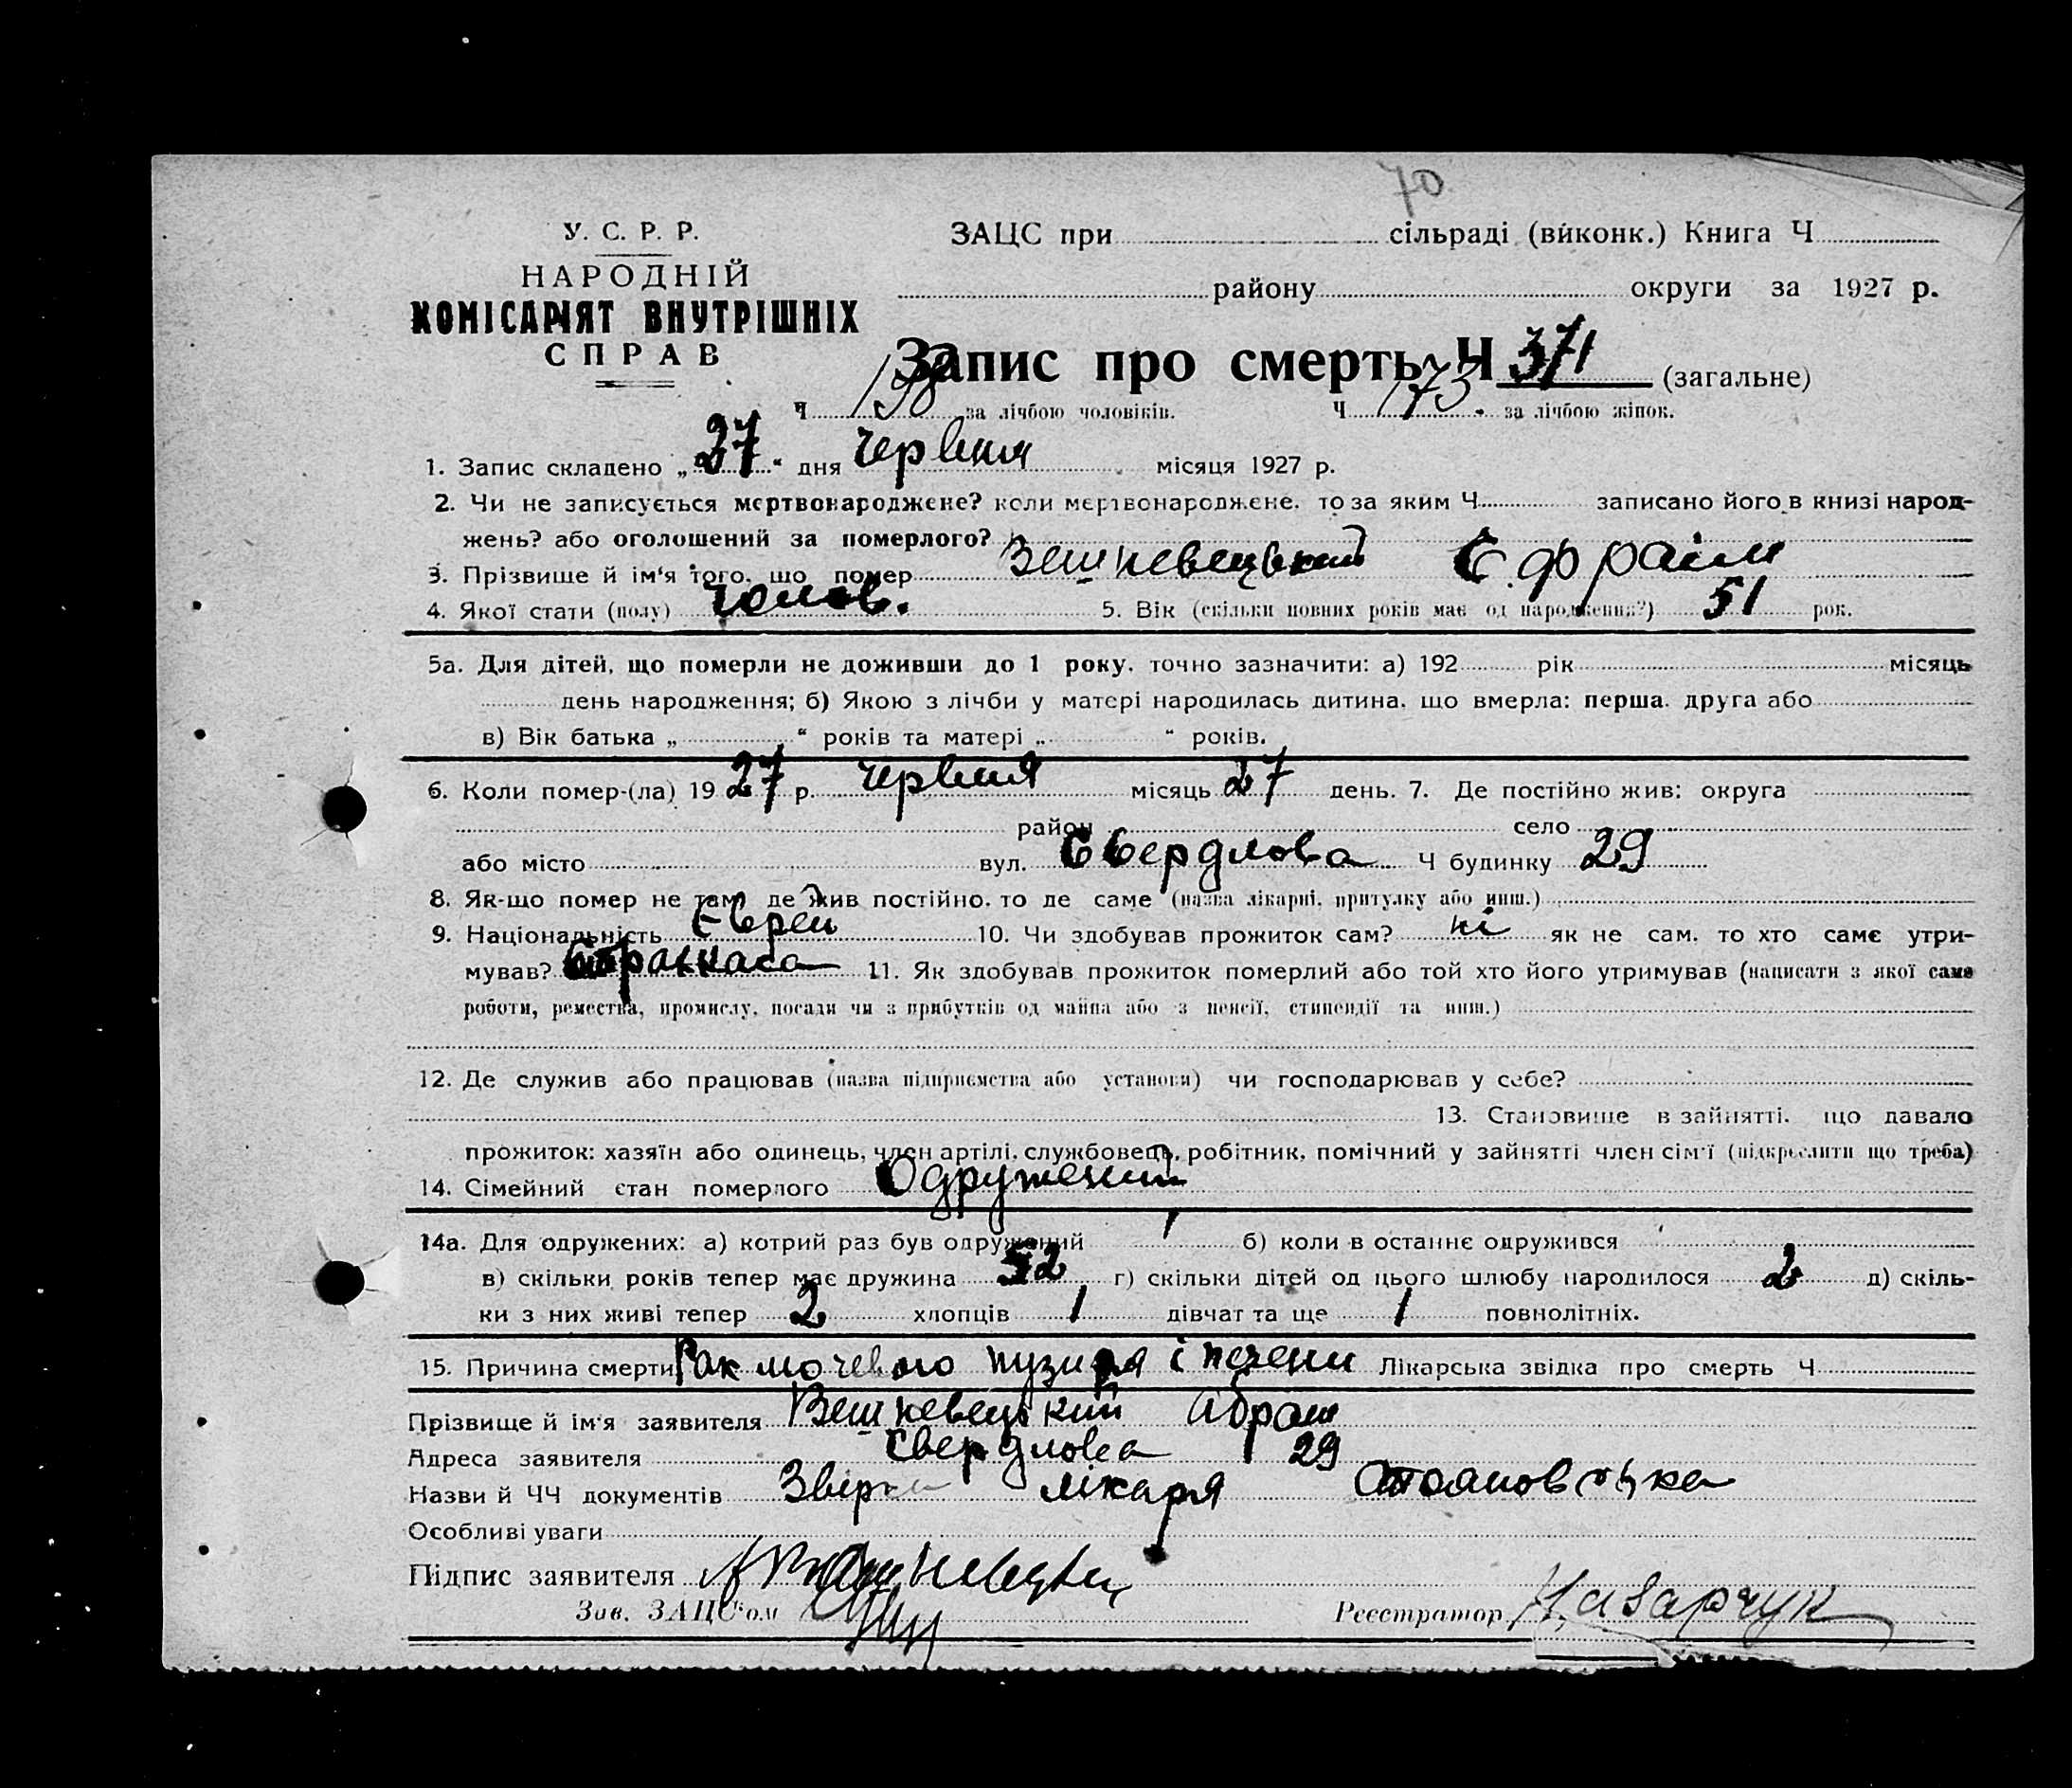 70
У. С. Р. Р.
НАРОДНІЙ
КОМІСАРІЯТ ВНУТРІШНІХ
СПРАВ
ЗАЦС при сільраді (виконк.) Книга Ч
району округи за 1927 р.
Запис про смерть Ч 371 (загальне)
Ч 198 за лічбою чоловіків. Ч 173 за лічбою жінок.
1. Запис складено „27“ дня червня місяця 1927 р.
2. Чи не записується мертвонароджене? коли мертвонароджене, то за яким Ч записано його в книзі народ-
жень? або оголошений за померлого?
3. Прізвище й ім'я того, що помер Вешневецький Єфраім
4. Якої стати (полу) чолов. 5. Вік (скільки повних років має од народження?) 51 рок.
5а. Для дітей, що померли не доживши до 1 року, точно зазначити: а) 192 рік місяць
день народження; б) Якою з лічби у матері народилась дитина, що вмерла: перша, друга або
в) Вік батька „ “ років та матері „ “ років.
6. Коли помер-(ла) 1927 р. червня місяць 27 день. 7. Де постійно жив: округа
район село
або місто вул. Свердлова Ч будинку 29
8. Як-що помер не там, де жив постійно, то де саме (назва лікарні, притулку або инш.)
9. Національність Єврей 10. Чи здобував прожиток сам? ні як не сам, то хто саме утри-
мував? Страхкаса 11. Як здобував прожиток померлий або той хто його утримував (написати з якої саме
роботи, ремества, промислу, посади чи з прибутків од майна або з пенсії, стипендії та инш.)
12. Де служив або працював (назва підприємства або установи) чи господарював у себе?
13. Становище в зайнятті, що давало
прожиток: хазяїн або одинець, член артілі, службовець, робітник, помічний у зайнятті член сім'ї (підкреслити що треба)
14. Сімейний стан померлого Одружений
14а. Для одружених: а) котрий раз був одружений 1 б) коли в останнє одружився
в) скільки років тепер має дружина 52 г) скільки дітей од цього шлюбу народилося 2 д) скіль-
ки з них живі тепер 2 хлопців 1 дівчат та ще 1 повнолітніх.
15. Причина смерти Рак мочевого пузиря і печени Лікарська звідка про смерть Ч
Прізвище й ім'я заявителя Вешневецький Абрам
Адреса заявителя Свердлова 29
Назви й ЧЧ документів лікаря Стояновська
Особливі уваги
Підпис заявителя
Зав. ЗАЦС'ом Реєстратор Назарчук